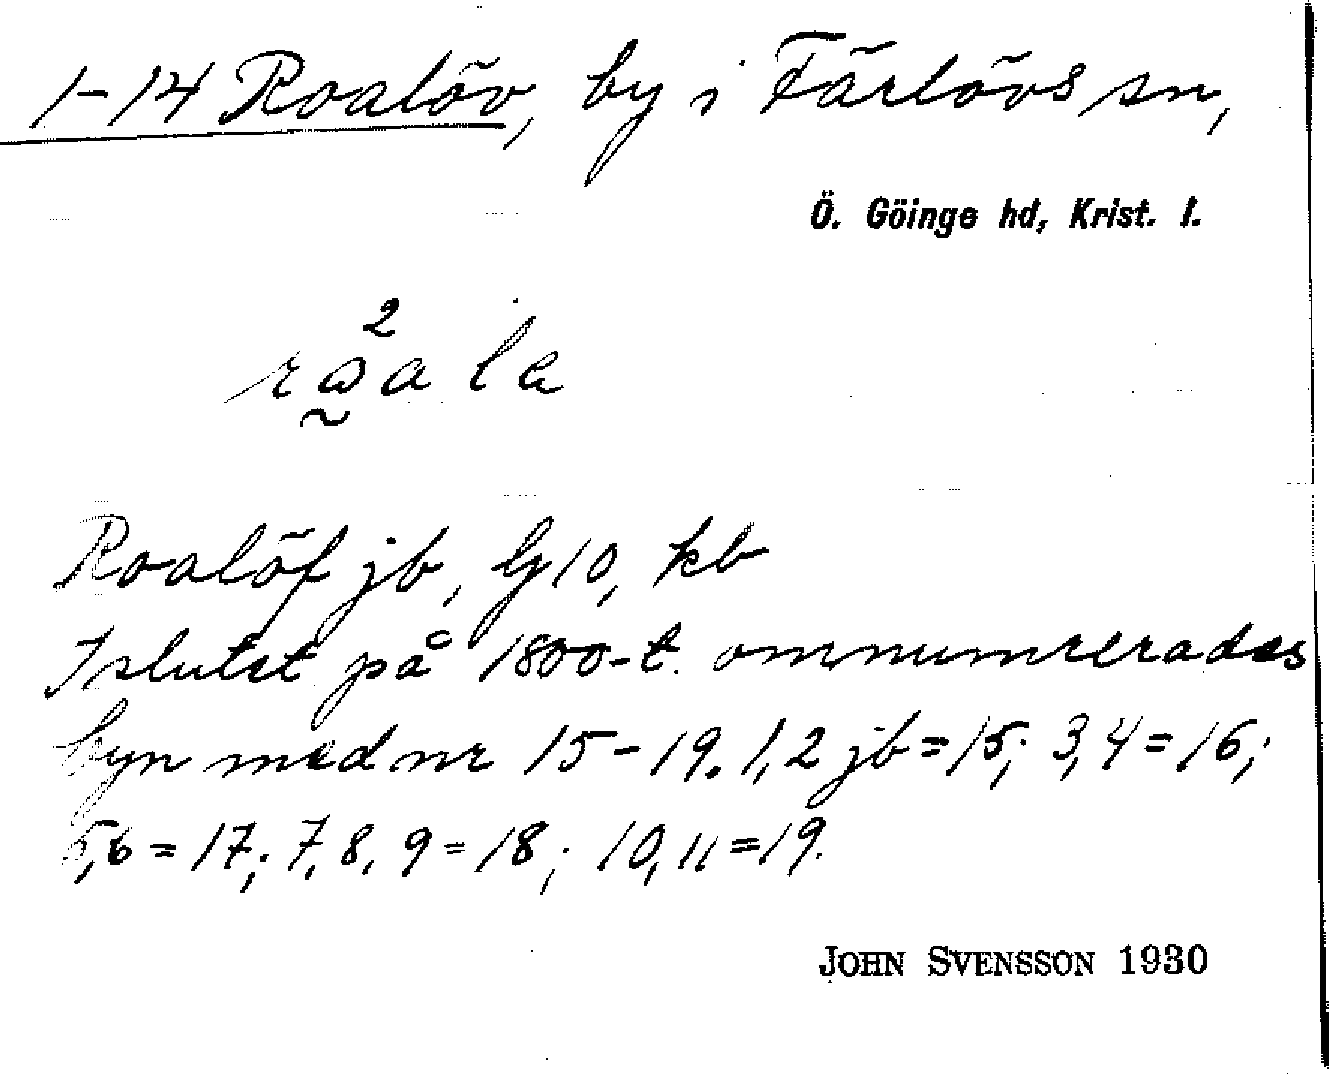 1-14 Roalöv, by i Färlövs sn,
Ö. Göinge hd, Krist. l.
Roalöf jb, G10, kb
I slutet på 1800-t. omnumrerades
byn med nr 15-19. 1,2 jb=15; 3,4=16;
5,6=17; 7,8,9=18; 10,11=19.
JOHN SVENSSON 1930